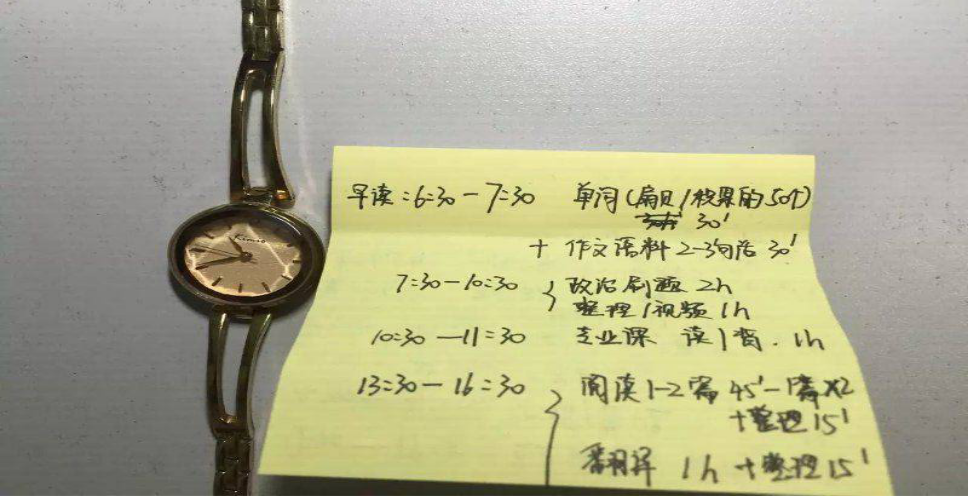 Kimio
早读：6:30－7:30 单词（扇贝/软果的50个）
30'
+ 作文语料 2-3句话 30'
7:30－10:30 政治刷题 2h
整理/视频 1h
10:30－11:30 专业课 读/背. 1h
13:30－16:30 阅读1-2篇 45'-1篇×2
+整理15'
翻译 1h +整理15'